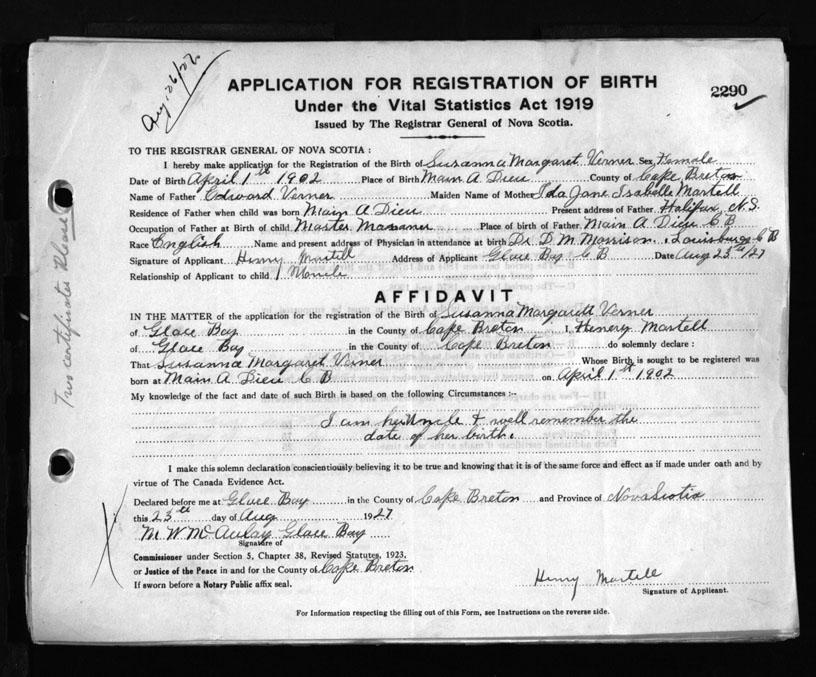 Aug. 26/27
APPLICATION FOR REGISTRATION OF BIRTH
2290
Under the Vital Statistics Act 1919
Issued by The Registrar General of Nova Scotia.
TO THE REGISTRAR GENERAL OF NOVA SCOTIA :
I hereby make application for the Registration of the Birth of Susanna Margaret Verner Sex, Female
Date of Birth April 1st 1902 Place of Birth Main A Dieu County of Cape Breton
Name of Father Edward Verner Maiden Name of Mother Ida Jane Isabelle Martell
Residence of Father when child was born Main A Dieu Present address of Father Halifax N.S.
Occupation of Father at Birth of child Master Place of birth of Father Main A Dieu C B
Race English Name and present address of Physician in attendance at birth Dr. D. M. Morrison, Louisburg C B
Signature of Applicant Henry Martell Address of Applicant Glace Bay C B Date Aug 23rd/27
Relationship of Applicant to child
AFFIDAVIT
IN THE MATTER of the application for the registration of the Birth of Susanna Margarett Verner
of Glace Bay in the County of Cape Breton I, Henery Martell
of Glace Bay in the County of Cape Breton do solemnly declare :
That Susanna Margaret Verner Whose Birth is sought to be registered was
born at Main A Dieu C B on April 1st 1902
My knowledge of the fact and date of such Birth is based on the following Circumstances :-
I am her Uncle & well remember the
date of her birth.
I make this solemn declaration conscientiously believing it to be true and knowing that it is of the same force and effect as if made under oath and by
virtue of The Canada Evidence Act.
Declared before me at Glace Bay in the County of Cape Breton and Province of Nova Scotia
this 25th day of Aug 1927
M W McAulay Glace Bay
Signature of
Commissioner under Section 5, Chapter 38, Revised Statutes, 1923.
or Justice of the Peace in and for the County of Cape Breton
If sworn before a Notary Public affix seal.
Henry Martell
Signature of Applicant.
For Information respecting the filling out of this Form, see Instructions on the reverse side.
Two certificates Please